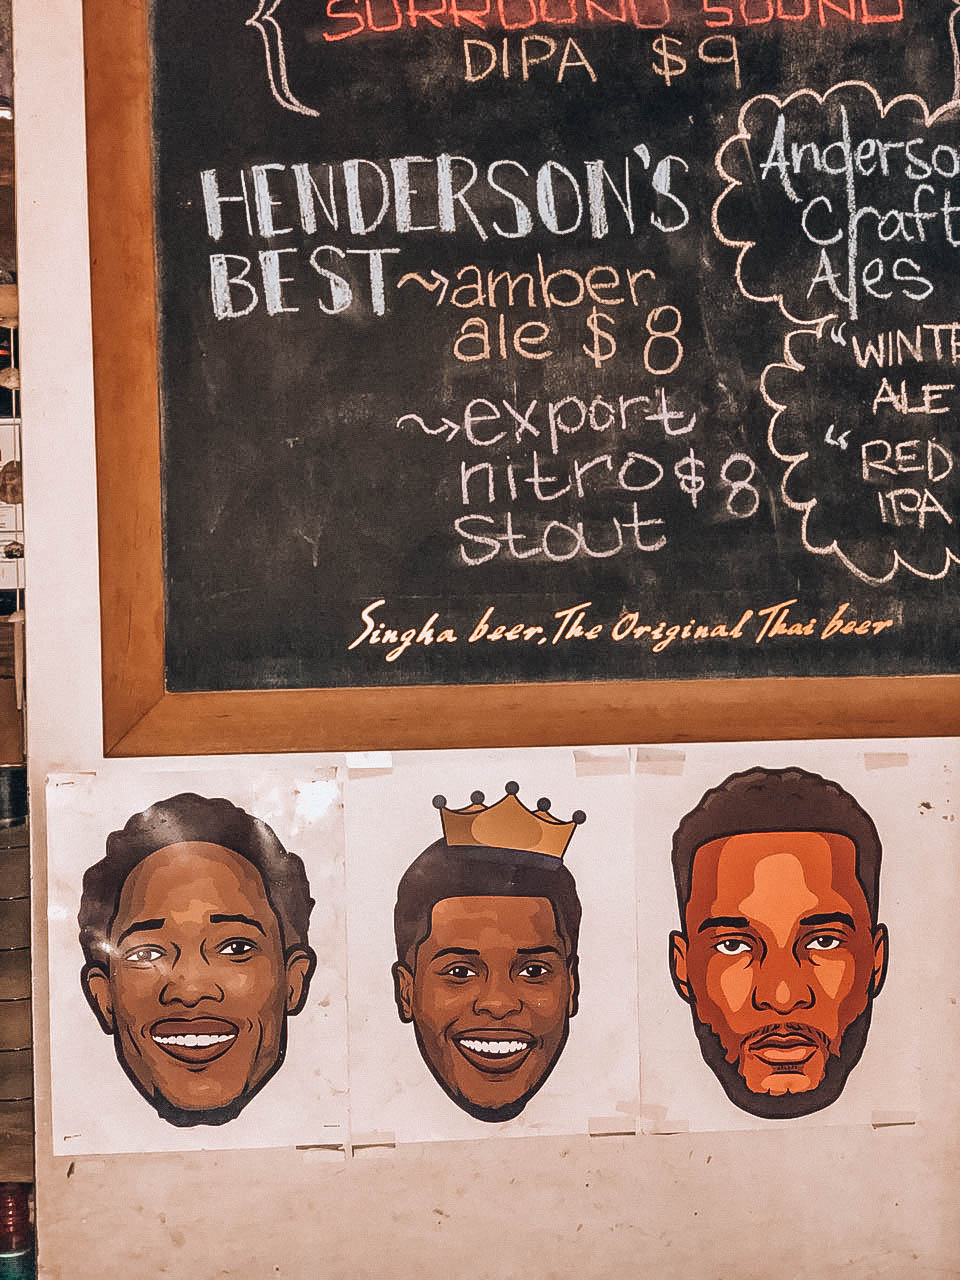 SURROUND SOUND
DIPA $9
HENDERSON'S
BEST ~> amber
ale $8
~> export
nitro $8
stout
Anderso
Craft
Ales
"WINTE
ALE
"RED
IPA
Singha beer, The Original Thai beer